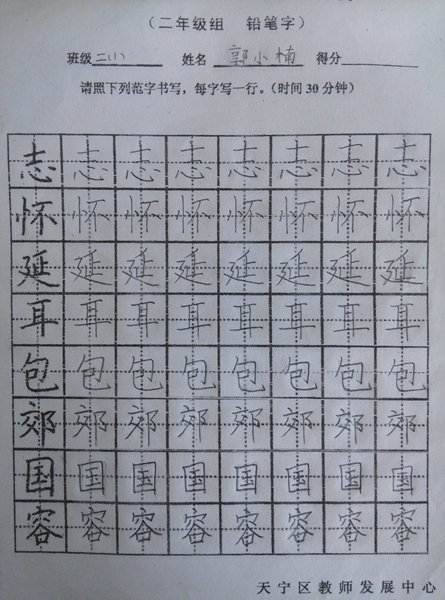 （二年级组 铅笔字）
班级 二(1) 姓名 郭小楠 得分
请照下列范字书写，每字写一行。（时间30分钟）
志 志 志 志 志 志 志 志
怀 怀 怀 怀 怀 怀 怀 怀
延 延 延 延 延 延 延 延
耳 耳 耳 耳 耳 耳 耳 耳
包 包 包 包 包 包 包 包
郊 郊 郊 郊 郊 郊 郊 郊
国 国 国 国 国 国 国 国
容 容 容 容 容 容 容 容
天宁区教师发展中心